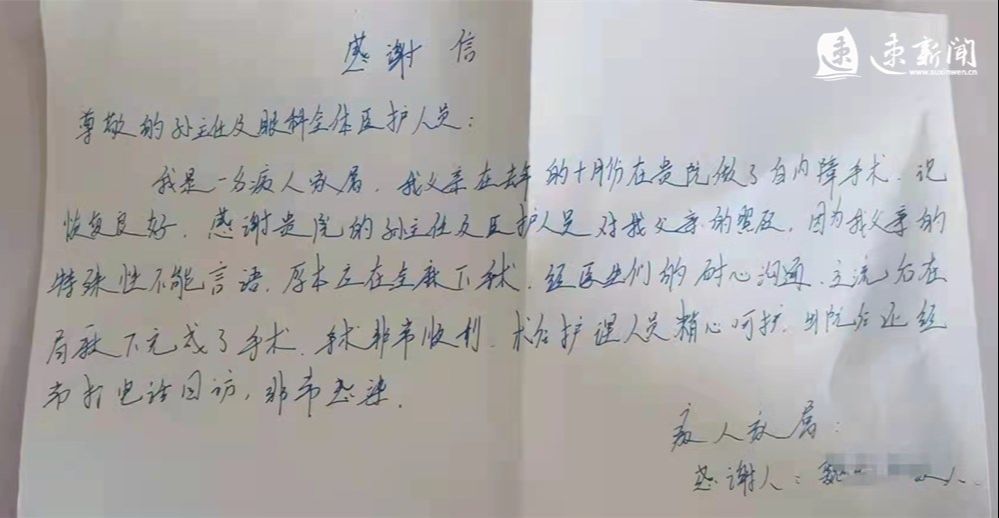 速新闻
www.suxinwen.cn
感谢信
尊敬的孙主任及眼科全体医护人员：
我是一名病人家属，我父亲在去年的十月份在贵院做了白内障手术，现
恢复良好，感谢贵院的孙主任及医护人员对我父亲的照顾，因为我父亲的
特殊性不能言语，原本应在全麻下手术，经医生们的耐心沟通，交流后在
局麻下完成了手术，手术非常顺利，术后护理人员精心呵护，出院后还经
常打电话回访，非常感染．
病人家属：
感谢人：魏